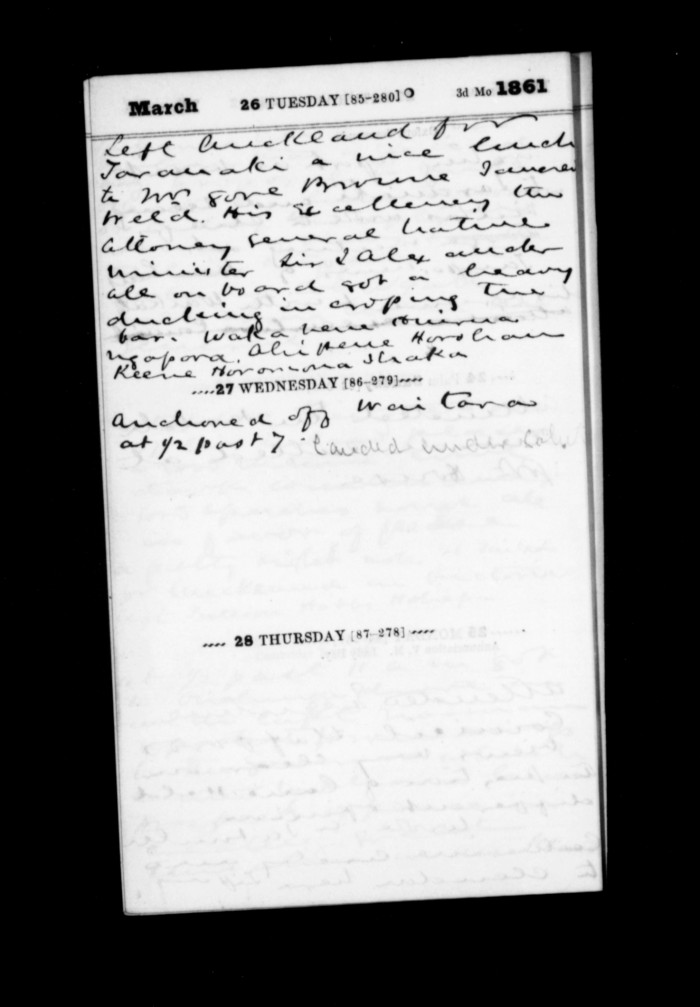 March 26 TUESDAY [85-280] 3d Mo 1861
Left Auckland for
Taranaki a nice lunch
to Mrs gore Browne
Weld. His Excellency the
Attorney general native
minister Sir J Alexander
all on board got a heavy
ducking in croping the
bar. Waka nene
ngapora.
Keene Horomona
27 WEDNESDAY [86-279]
anchored off Waitara
at 1/2 past 7 Landed under
28 THURSDAY [87-278]